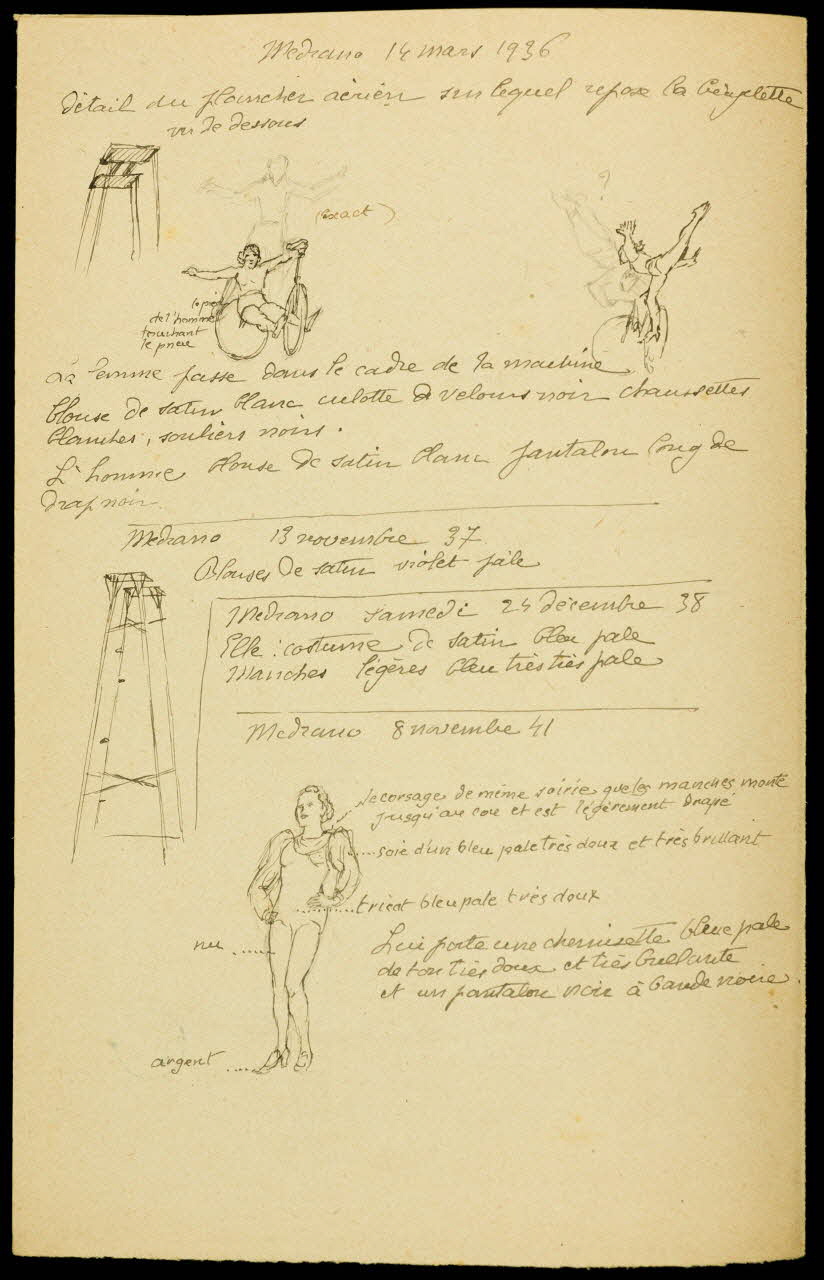 Medrano 14 mars 1936
détail du plancher aérien sur lequel repose la bicyclette
vu de dessous
(exact)
?
le pied
de l'homme
touchant
le pneu
La femme passe dans le cadre de la machine
blouse de satin blanc culotte de velours noir chaussettes
blanches, souliers noirs.
L'homme blouse de satin blanc pantalon long de
drap noir
Medrano 13 novembre 37
Blouses de satin violet pâle
Medrano samedi 24 décembre 38
Elle : costume de satin bleu pale
Manches légères bleu très très pale
Medrano 8 novembre 41
le corsage de même soirie que les manches monte
jusqu'au cou et est légèrement drapé
soie d'un bleu pale très doux et très brillant
tricot bleu pale très doux
nu
Lui porte une chemisette bleue pale
de ton très doux et très brillante
et un pantalon noir à bande noire.
argent